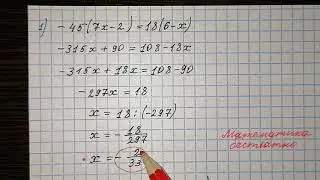 1) -45(7x-2)=18(6-x)
-315x+90=108-18x
-315x+18x=108-90
-297x=18
x=18:(-297)
x=-18/297
x=-2/33
Математика
бесплатно